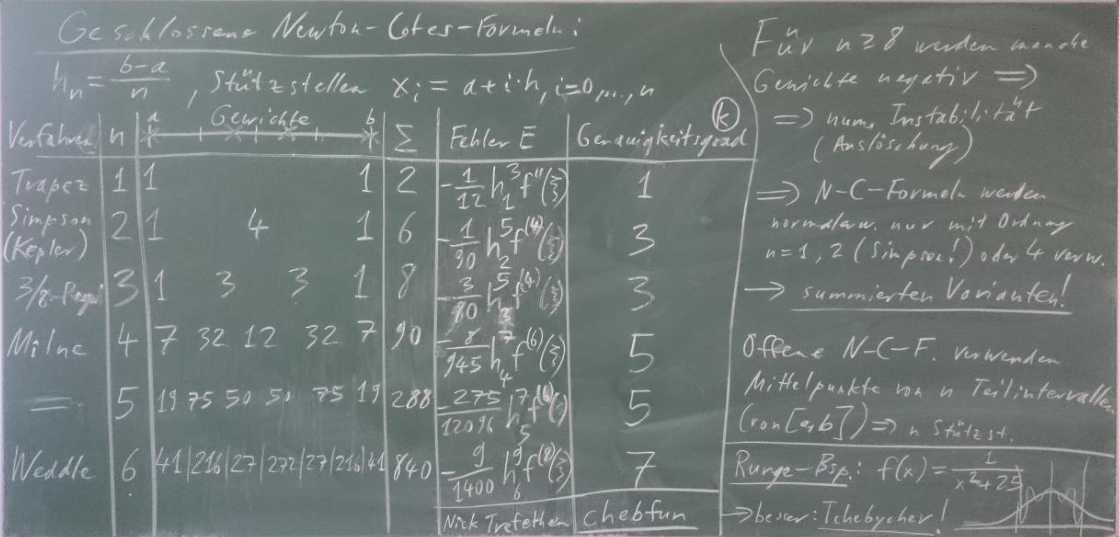 Geschlossene Newton-Cotes-Formeln:
hₙ = (b-a)/n , Stützstellen xᵢ = a+i·h, i=0,...,n
Verfahren n a Gewichte b Σ Fehler E Genauigkeitsgrad (k)
Trapez 1 1 1 2 -1/12 h₁³ f''(ξ) 1
Simpson (Kepler) 2 1 4 1 6 -1/90 h₂⁵ f⁽⁴⁾(ξ) 3
3/8-Regel 3 1 3 3 1 8 -3/80 h₃⁵ f⁽⁴⁾(ξ) 3
Milne 4 7 32 12 32 7 90 -8/945 h₄⁷ f⁽⁶⁾(ξ) 5
— 5 19 75 50 50 75 19 288 -275/12096 h₅⁷ f⁽⁶⁾( ) 5
Weddle 6 41|216|27|272|27|216|41 840 -9/1400 h₆⁹ f⁽⁸⁾(ξ) 7
Nick Trefethen chebfun
Für n≥8 werden manche
Gewichte negativ ⇒
⇒ num. Instabilität
(Auslöschung)
⇒ N-C-Formeln werden
normalerw. nur mit Ordnung
n=1,2 (Simpson!) oder 4 verw.
→ summierten Varianten!
Offene N-C-F. verwenden
Mittelpunkte von n Teilintervallen
(von [a,b]) ⇒ n Stützst.
Runge-Bsp: f(x) = 1/(x²+25)
→ besser: Tchebychev!